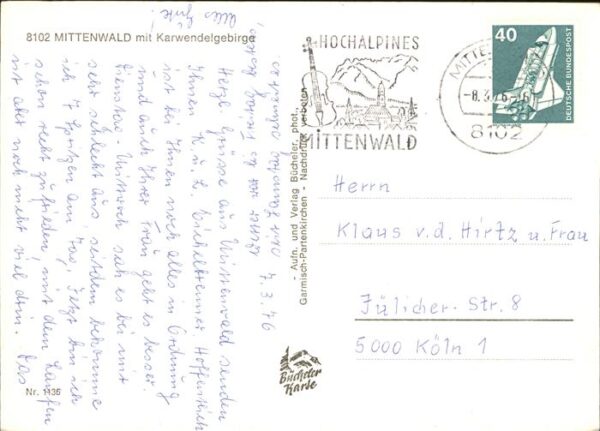 8102 MITTENWALD mit Karwendelgebirge
7.3.76
Herzl. Grüsse aus Mittenwald senden
Ihnen K. u. L.
ist bei Ihnen noch alles in Ordnung
und auch Ihrer Frau geht es besser.
Dienstag - Mittwoch sah es bei mir
sehr schlecht aus, seitdem bekomme
ich 7 Spritzen am Tag. Jetzt bin ich
schon recht zufrieden, mit dem Laufen
ist aber noch nicht viel drin. Das
Alles
Gute!
Nr. 1436
- Aufn. und Verlag Bücheler, phot.
Garmisch-Partenkirchen - Nachdruck verboten
Bücheler
Karte
HOCHALPINES
MITTENWALD
MITTE
-8.3.76
8102
40
DEUTSCHE BUNDESPOST
Herrn
Klaus v.d. Hirtz u. Frau
Jülicher-Str. 8
5000 Köln 1